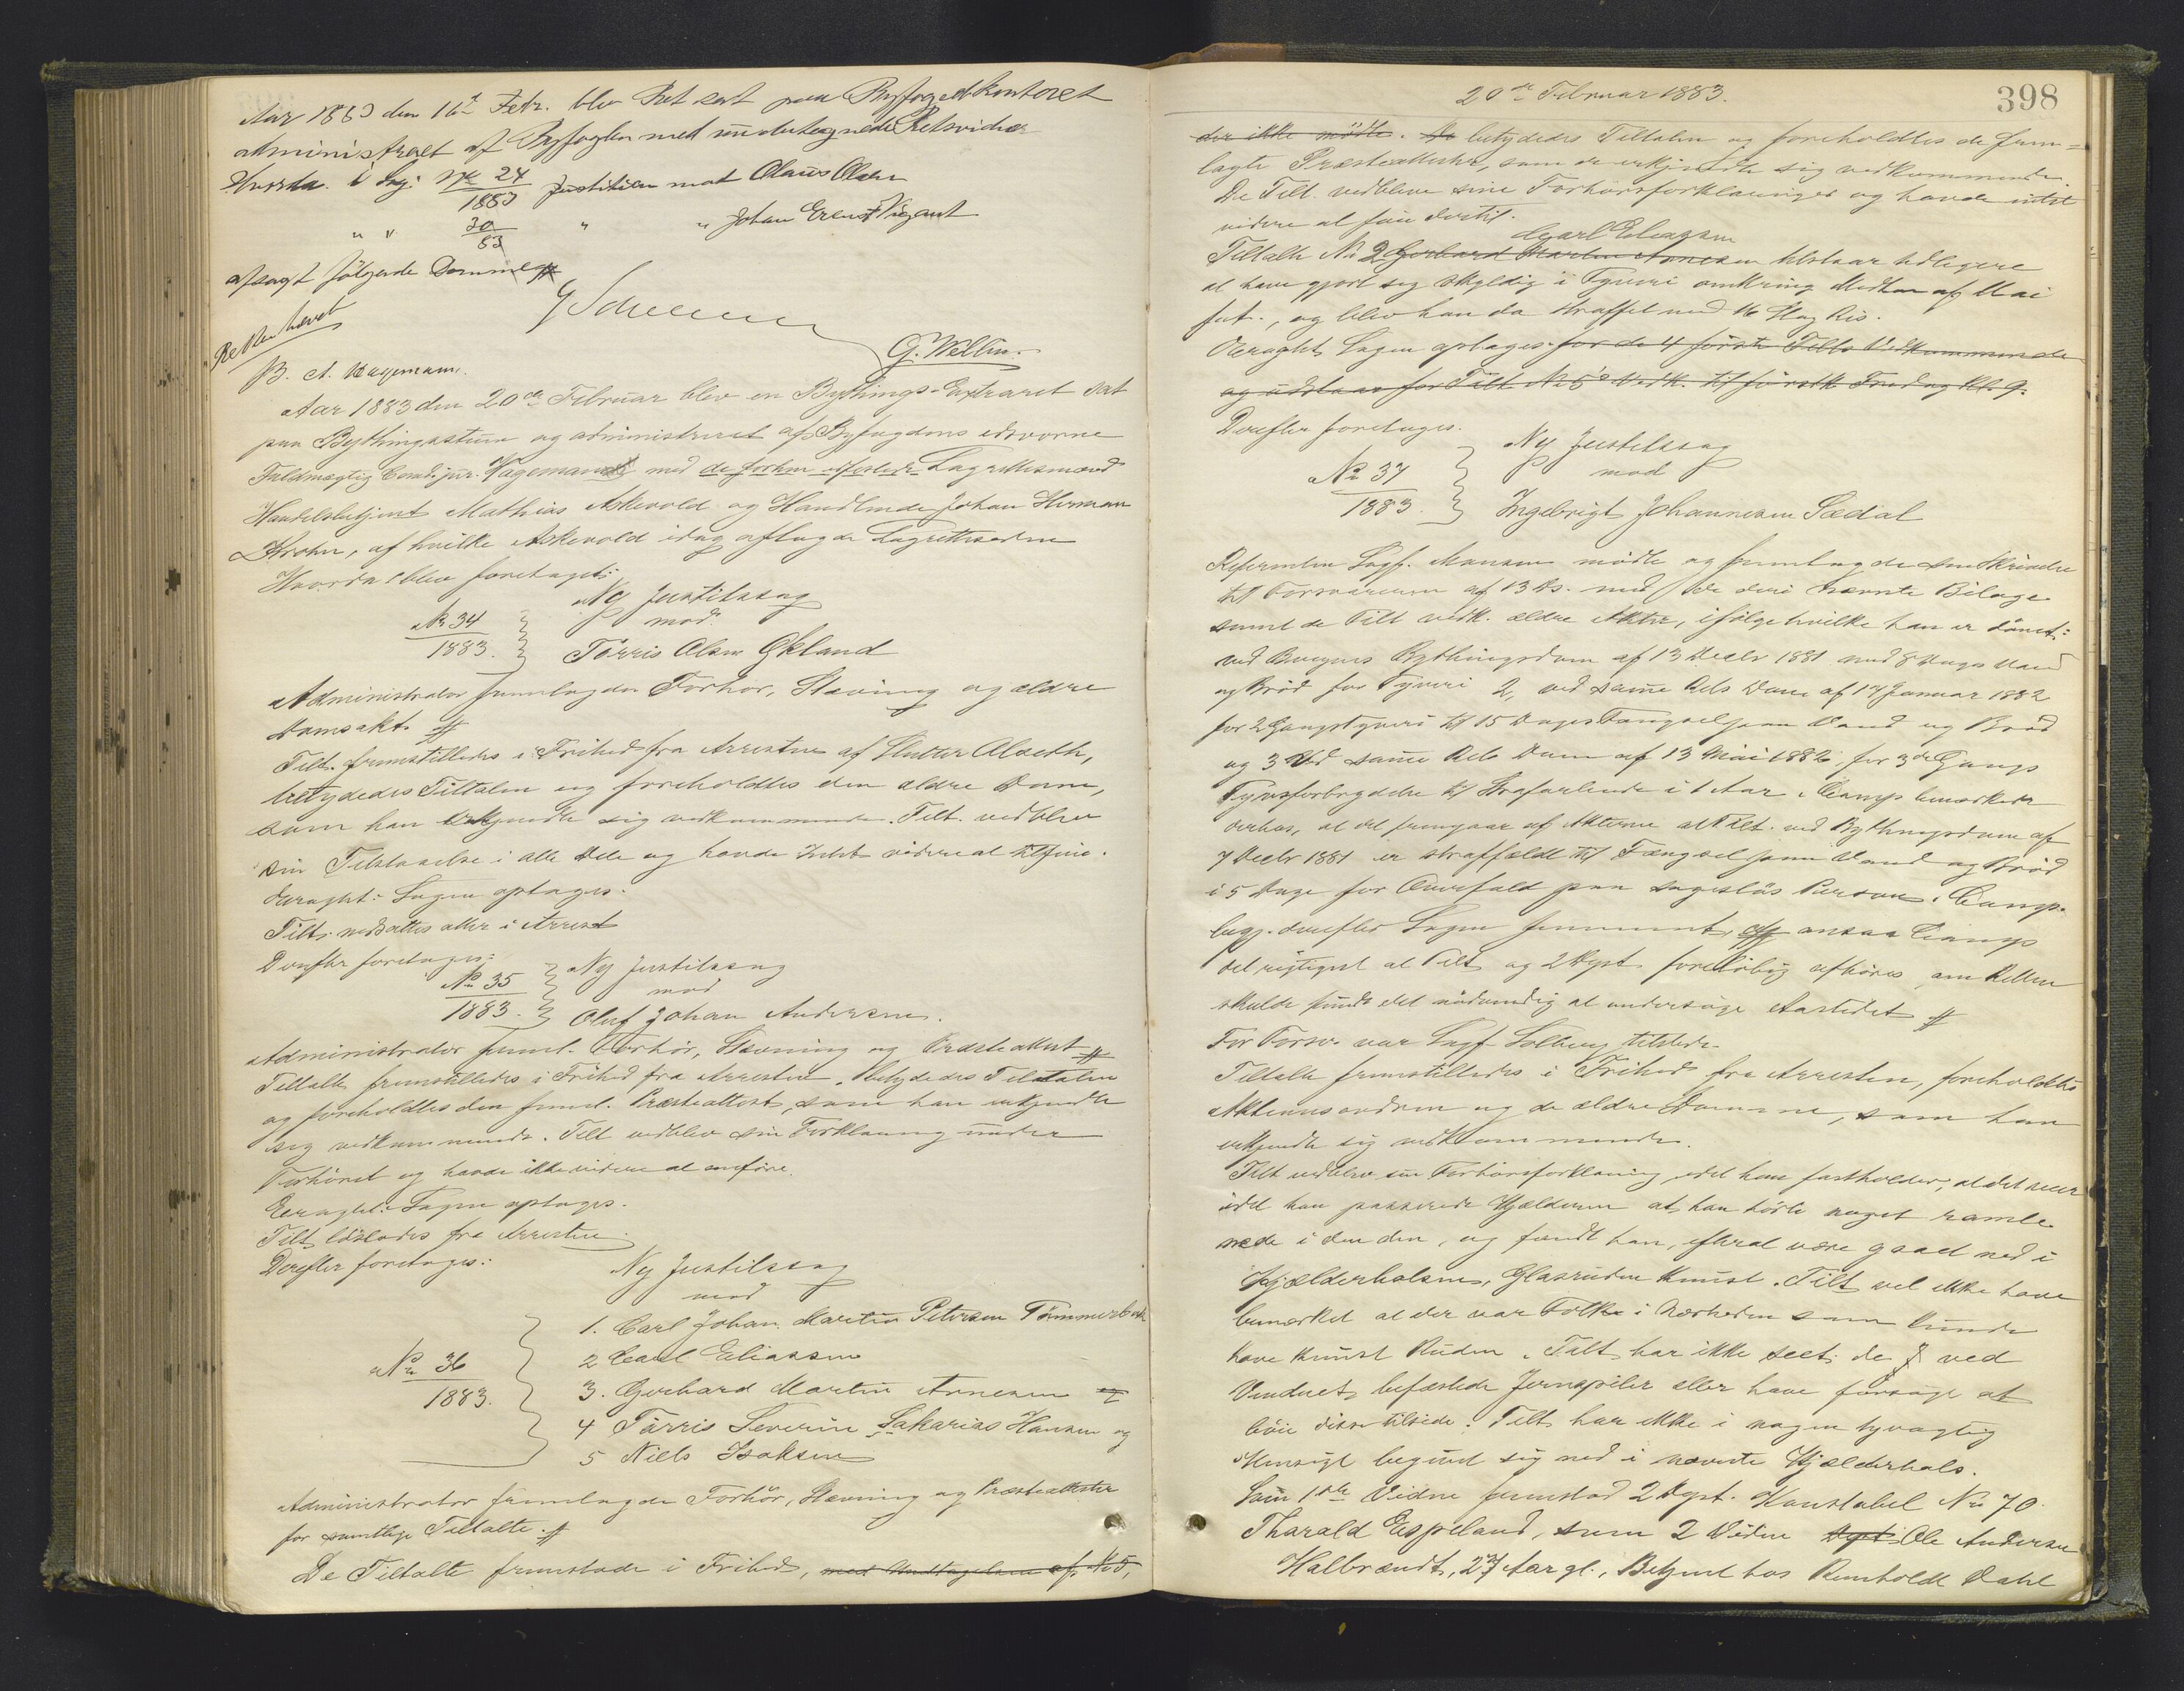 Aar 1883 den 16de Febr. blev Ret sat paa Byfogedkontoret
administreret af Byfogden med undertegnede Retsvidner
Hvorda i Sag No 24/1883 Justitien mod Olaus Olsen
" " 30/83 " " Johan Ernst Vigant
afsagt følgende Domme
Retten hævet
G. Wellin
B. A. Wagemann.
Aar 1883 den 20de Februar blev en Bythings-Extraret sat
paa Bythingsstuen og administreret af Byfogdens edsvorne
Fuldmægtig Cand. jur. Wagemann med de forhen udfæstede Lagrettesmænd
Handelsbetjent Mathias Askevold og Handlende Johan Herman
Krohn, af hvilke Askevold idag aflagde Lagretteseden
Hvorda blev foretaget:
Ny Justitssag
No 34 mod
1883. Törris Olsen Økland
Administrator fremlagde Forhör, Stævning og ældre
Domsakt.
Tilt. fremstilledes i Frihed fra Arresten af Slutter Alveth,
betydedes Tiltalen og foreholdtes den ældre Dom,
som han erkjendte sig vedkommende. Tilt. vedblev
sin Tilstaaelse i alle Dele og havde Intet videre at tilföie.
Eragtet: Sagen optages.
Tilt. nedsattes atter i Arrest
Derefter foretoges:
No 35 Ny Justitssag
mod
1883. Oluf Johan Andersen.
Administrator freml. Forhör, Stævning og Præsteattest
Tiltalte fremstilledes i Frihed fra Arresten, betydedes Tiltalen
og foreholdtes den freml. Præsteattest, som han erkjendte
sig vedkommende. Tilt. vedblev sin Forklaring under
Forhöret og havde ikke videre at anföre.
Eragtet: Sagen optages.
Tilt. löslodes fra Arresten.
Derefter foretoges:
Ny Justitssag
mod
1. Carl Johan Martin Petersen Tömmerbak
No 36 2 Carl Eliassen
1883. 3. Gerhard Martin Arnesen og
4 Törris Severin Sakarias Hansen og
5 Niels Isaksen
Administrator fremlagde Forhör, Stævning og Præsteattester
for samtlige Tiltalte.
De Tiltalte fremstode i Frihed, med Undtagelsen af No 5,
398
20de Februar 1883.
der ikke mödte. De betydedes Tiltalen og foreholdtes de frem=
lagte Præsteattester, som de erkjendte sig vedkommende.
De Tilt. vedbleve sine Forhörsforklaringer og havde intet
videre at föie dertil.
Carl Eliassen
Tiltalte No 2 Gerhard Martin Arnesen tilstaar tidligere
at have gjort sig skyldig i Tyveri omkring Midten af Mai
f. A., og blev han da straffet med 16 Slag Ris.
Eragtet Sagen optages for de 4 förste Tilts Vedkommende
og udstaar for Tilt No 5's Vedk. til förstk. Fredag Kl. 9.
Derefter foretoges.
Ny Justitssag
No 37 mod
1883. Ingebrigt Johannesen Sædal
Referenten Sagf. Monsen mödte og fremlagde sin Skrivelse
til Forsvareren af 13 ds. med de deri nævnte Bilage
samt de Tilt vedk. ældre Akter, ifölge hvilke han er dömt:
ved Bergens Bythingsdom af 13 Decbr 1881 med 8 Dages Vand
og Bröd for Tyveri 2, ved samme Rets Dom af 17 Januar 1882
for 2 Gangs tyveri til 15 Dages Fængsel paa Vand og Bröd
og 3 Ved samme Rets Dom af 13 Mai 1882, for 3de Gangs
Tyvsforbrydelse til Strafarbeide i 1 Aar. Comp bemærkede
derhos, at det fremgaar af Akterne at Tilt. ved Bythingsdom af
7 Decbr 1881 er straffældt til Fængsel paa Vand og Bröd
i 5 Dage for Overfald paa sageslös Person. Comp.
begj. derefter Sagen fremmet, ansaa Comp
det rigtigst at Tilt og 2 Dept. foreløbig afhöres, om Retten
skulde finde det nödvendig at undersöge Aastedet
For Forsv. var Sagf. Solberg tilstede.
Tiltalte fremstilledes i Frihed fra Arresten, foreholdtes
Aktionsordren og de ældre Domme, som han
erkjendte sig vedkommende.
Tilt vedblev sin Forhörsforklaring, idet han fastholder, at det var
idet han passerede Kjælderen at han hörte noget ramle
nede i den, og fandt han, efterat være gaaet ned i
Kjælderhalsen, Glasruden knust. Tilt vil ikke have
bemærket at der var Folk i Nærheden som kunde
have knust Ruden. Tilt har ikke seet de ved
Vinduet befæstede Jernspiler eller have forsögt at
böie disse tilside. Tilt har ikke i nogen tyvagtig
Hensigt begivet sig ned i nævnte Kjælderhals.
Som 1ste Vidne fremstod 2 Dept. Konstabel No 70
Tharald Espeland, som 2 Vidne Dept Ole Andersen
Halbrændt, 27 Aar gl., Betjent hos Reinholdt Dahl